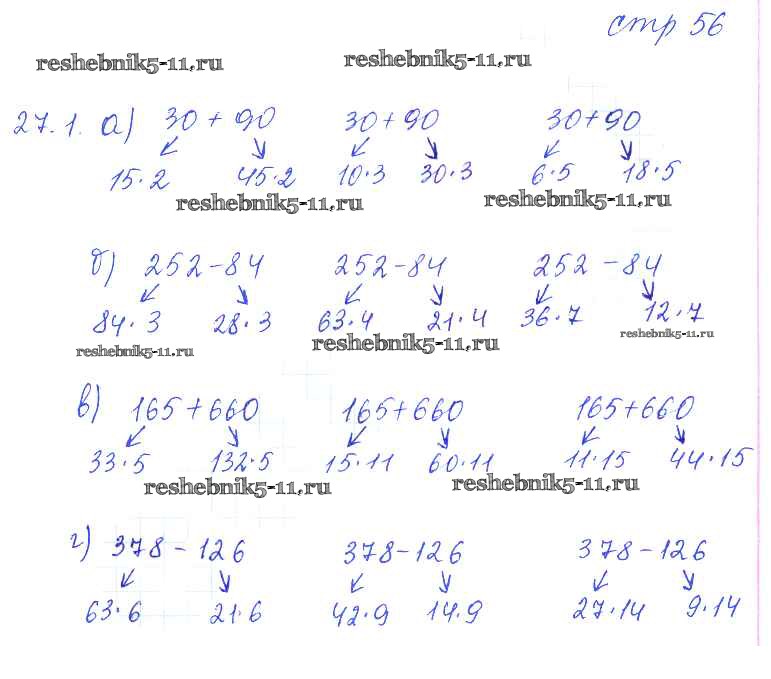 стр 56
reshebnik5-11.ru reshebnik5-11.ru
27.1. а) 30 + 90 30 + 90 30 + 90
15·2 45·2 10·3 30·3 6·5 18·5
reshebnik5-11.ru reshebnik5-11.ru
б) 252 - 84 252 - 84 252 - 84
84·3 28·3 63·4 21·4 36·7 12·7
reshebnik5-11.ru reshebnik5-11.ru reshebnik5-11.ru
в) 165 + 660 165 + 660 165 + 660
33·5 132·5 15·11 60·11 11·15 44·15
reshebnik5-11.ru reshebnik5-11.ru
г) 378 - 126 378 - 126 378 - 126
63·6 21·6 42·9 14·9 27·14 9·14